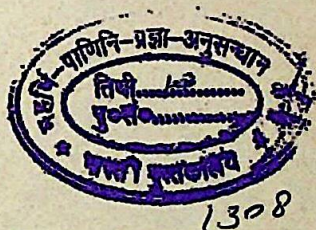 महर्षि-पाणिनि-प्रज्ञा-अनुसन्धान
तिथी..........
पु०सं०..........
पुस्तकालय
1308